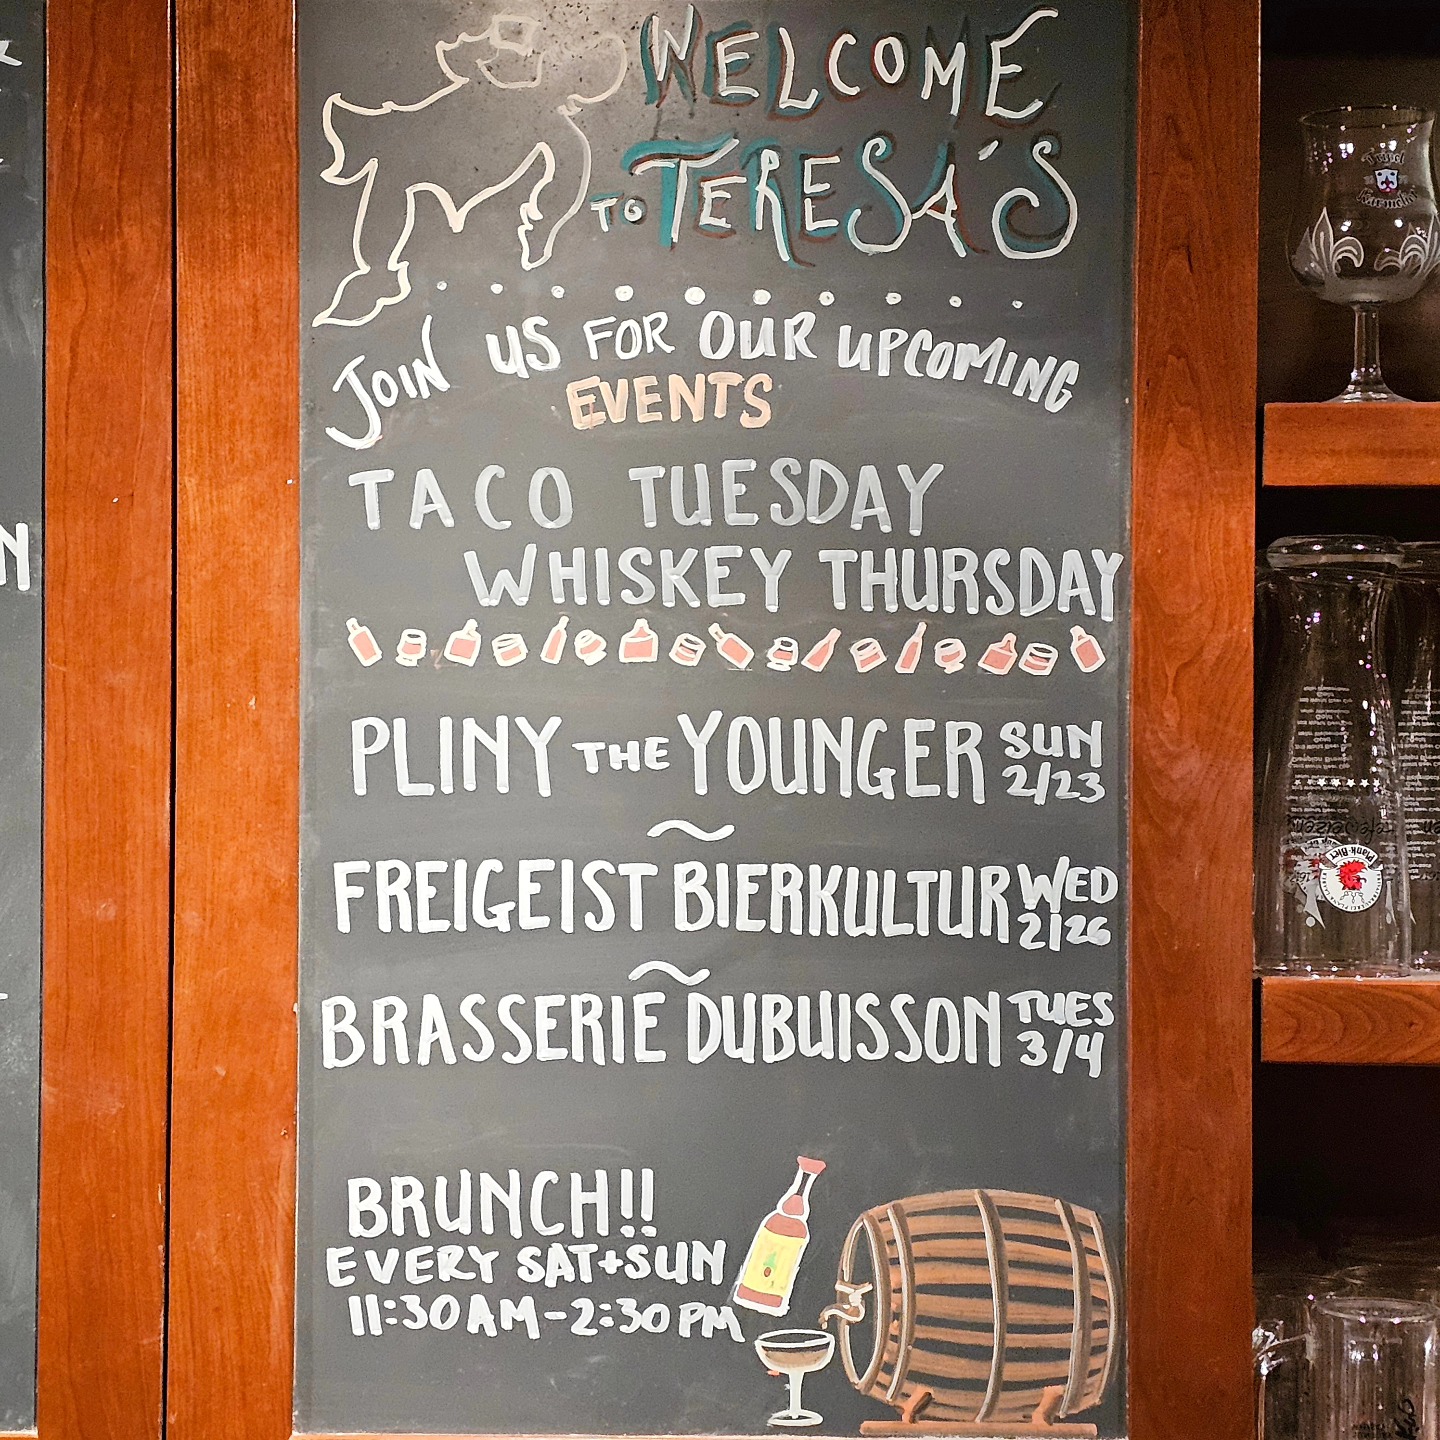 WELCOME
TO TERESA'S
JOIN US FOR OUR UPCOMING
EVENTS
TACO TUESDAY
WHISKEY THURSDAY
PLINY THE YOUNGER SUN 2/23
~
FREIGEIST BIERKULTUR WED 2/26
~
BRASSERIE DUBUISSON TUES 3/4
BRUNCH!!
EVERY SAT+SUN
11:30AM-2:30PM
Tripel
Karmeliet
Plank Bier
N